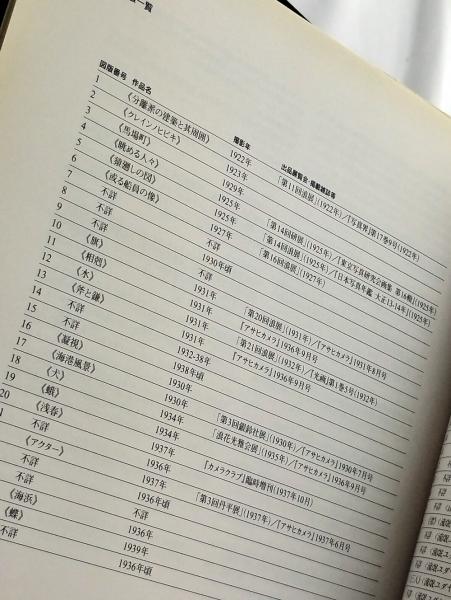 一覧
図版番号 作品名 撮影年 出品展覧会・掲載雑誌等
1 《分離派の建築と其周囲》 1922年 「第11回浪展」(1922年)/『写真界』第17巻9号(1922年)
2 《クレインノヒビキ》 1923年
3 《馬場町》 1929年
4 《眺める人々》 1925年 「第14回研展」(1925年)/『東京写真研究会画集 第16輯』(1925年)
5 《猿廻しの図》 1925年 「第14回浪展」(1925年)/『日本写真年鑑 大正13-14年』(1925年)
6 《或る船員の像》 1927年 「第16回浪展」(1927年)
7 不詳 不詳
8 不詳 1930年頃
9 不詳 1931年
10 《旗》 1931年 「第20回浪展」(1931年)/『アサヒカメラ』1931年8月号
11 《相剋》 1931年 『アサヒカメラ』1936年9月号
12 《水》 1931年 「第21回浪展」(1932年)/『光画』第1巻5号(1932年)
13 《斧と鎌》 1931年 『アサヒカメラ』1936年9月号
14 不詳 1932-38年
15 不詳 1938年頃
16 《凝視》 1930年 「第3回銀鈴社展」(1930年)/『アサヒカメラ』1930年7月号
17 《海港風景》 1930年 「浪花光雅会展」(1935年)/『アサヒカメラ』1936年9月号
18 《犬》 1934年
19 《蛾》 1934年 『カメラクラブ』臨時増刊(1937年10月)
20 《浅春》 1937年 「第3回丹平展」(1937年)/『アサヒカメラ』1937年6月号
1 不詳 1936年
《アクター》 1937年
不詳 1936年頃
《海浜》 不詳
《蝶》 1936年
不詳 1939年
1936年頃